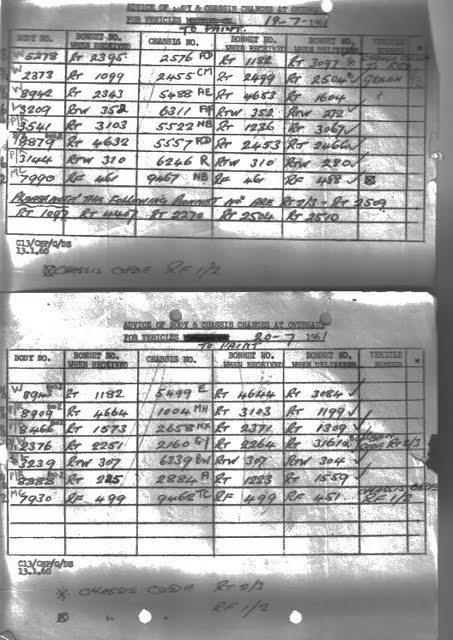 ADVICE OF BODY & CHASSIS CHANGES AT OVERHAUL
FOR VEHICLES 19-7-1961
TO PAINT.
BODY NO. BONNET NO. WHEN RECEIVED CHASSIS NO. BONNET NO. WHEN RECEIVED BONNET NO. WHEN DELIVERED VEHICLE NUMBER
W 5278 RT 2395 2576 RT 1182 RT 3097
W 2373 RT 1099 2455 CM RT 2499 RT 2504 GREEN
W 8942 RT 2343 5488 AE RT 4653 RT 1604 ?
3209 RTW 352 6311 RTW 352 RTW 272 ✓
P/R 3541 RT 3103 5522 NB RT 1236 RT 3067 ✓
8879 RT 4632 5557 RD RT 2453 RT 2466 ✓
P 3144 RTW 310 6246 R RTW 310 RTW 280 ✓
MC 7990 RF 461 9467 NB RF 461 RF 488 ✓
PLEASE NOTE THE FOLLOWING BONNET NOS ARE RT 2/3 - RT 2509
RT 1097 RT 4407 RT 2270 RT 2504 RT 2510
C13/OSP/G/DS
13.1.60
CHASSIS CODE RF 1/2
ADVICE OF BODY & CHASSIS CHANGES AT OVERHAUL
FOR VEHICLES 20-7 1961
TO PAINT
BODY NO. BONNET NO. WHEN RECEIVED CHASSIS NO. BONNET NO. WHEN RECEIVED BONNET NO. WHEN DELIVERED VEHICLE NUMBER *
W RT 1182 5499 E RT 4644 RT 3084 ✓
P/R 8909 RT 4664 1004 MH RT 3103 RT 1199 ✓
P/R 8466 RT 1573 2658 NX RT 2371 RT 1309 ✓
W 2376 RT 2251 2160 RT 2264 RT 3161 RT 2/3
3239 RTW 307 6339 BW RTW 307 RTW 304 ✓
8288 RT 225 2884 RT 1223 RT 1559 ✓
MC 7930 RF 499 9462 TC RF 499 RF 451 ✓ CHASSIS CODE RF 1/2
C13/OSP/G/DS
13.1.60
* CHASSIS CODE RT 2/3
" " RF 1/2